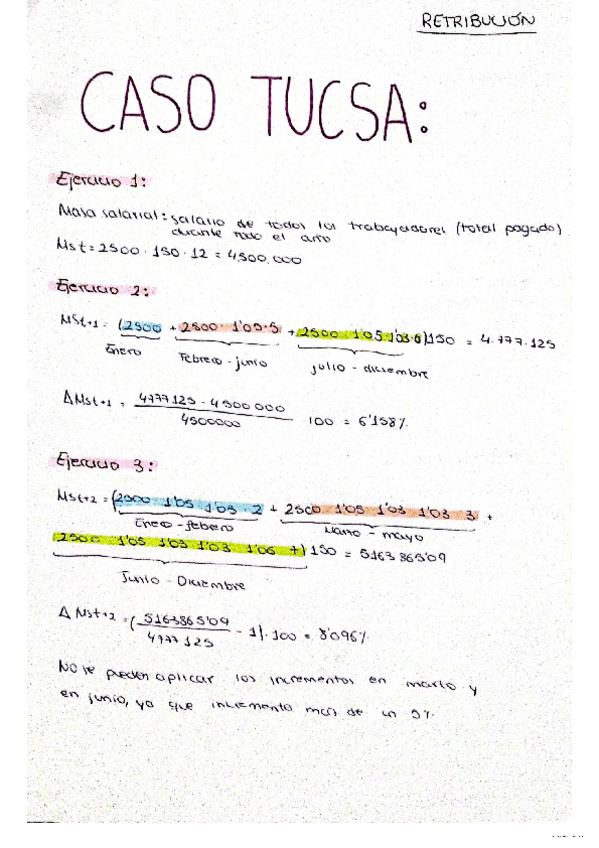 RETRIBUCIÓN
CASO TUCSA:
Ejercicio 1:
Masa salarial: salario de todos los trabajadores (total pagado)
durante todo el año
Mst = 2500 · 150 · 12 = 4500.000
Ejercicio 2:
MSt+1 = (2500 + 2500 · 1'05 · 5 + 2500 · 1'05 · 1'03 · 6) 150 = 4.777.125
Enero Febrero - junio julio - diciembre
ΔMSt+1 = 4777125 - 4500000 / 4500000 100 = 6'158%
Ejercicio 3:
MSt+2 = (2500 · 1'05 · 1'03 · 2 + 2500 · 1'05 · 1'03 · 1'03 · 3 +
Enero - febrero Marzo - mayo
2500 1'05 1'03 1'03 1'06 7) 150 = 5163865'09
Junio - Diciembre
ΔMSt+2 = (5163865'09 / 4777125 - 1) · 100 = 8'096%
No se pueden aplicar los incrementos en marzo y
en junio, ya que incremento más de un 5%.